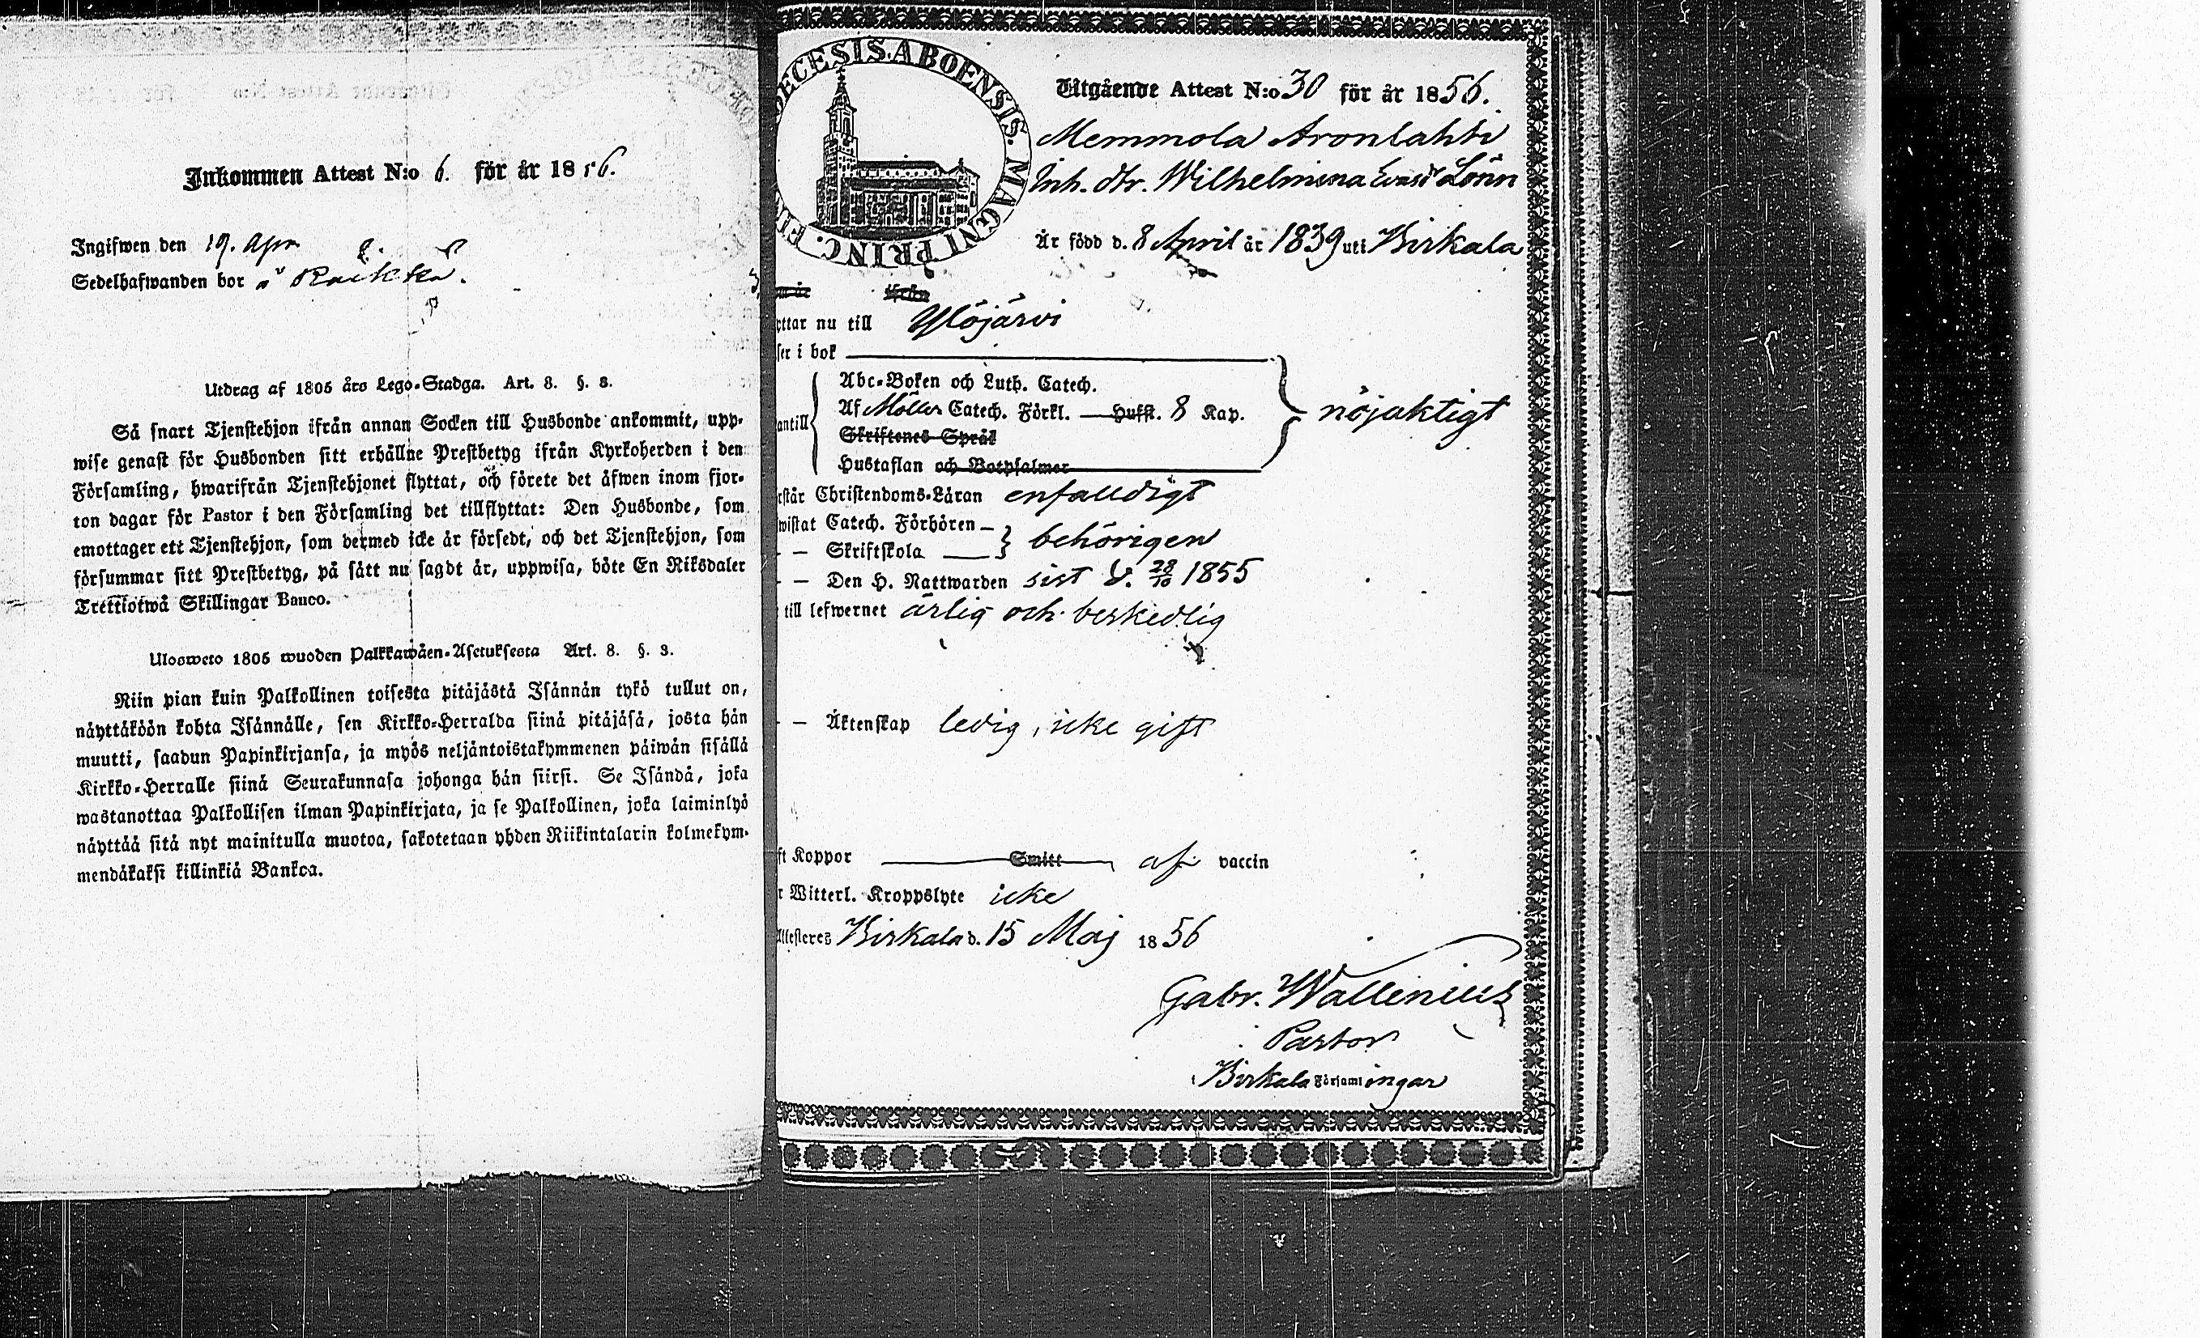 Inkommen Attest N:o 6. för år 1856.
Ingifwen den 19. Apr
Sedelhafwanden bor å Räikkä.
Utdrag af 1805 års Lego-Stadga. Art. 8. §. 8.
Så snart Tjenstehjon ifrån annan Socken till Husbonde ankommit, upp-
wise genast för Husbonden sitt erhållne Prestbetyg ifrån Kyrkoherden i den
Församling, hwarifrån Tjenstehjonet flyttat, och förete det äfwen inom fjor-
ton dagar för Pastor i den Församling det tillflyttat: Den Husbonde, som
emottager ett Tjenstehjon, som dermed icke är försedt, och det Tjenstehjon, som
försummar sitt Prestbetyg, på sätt nu sagdt är, uppwisa, böte En Riksdaler
Trettiotwå Skillingar Banco.
Ulosweto 1805 wuoden Palkkawäen-Asetuksesta Art. 8. §. 8.
Niin pian kuin Palkollinen toisesta pitäjästä Isännän tykö tullut on,
näyttäköön kohta Isännälle, sen Kirkko-Herralda siinä pitäjäsä, josta hän
muutti, saadun Papinkirjansa, ja myös neljäntoistakymmenen päiwän sisällä
Kirkko-Herralle siinä Seurakunnasa johonga hän siirsi. Se Isändä, joka
wastanottaa Palkollisen ilman Papinkirjata, ja se Palkollinen, joka laiminlyö
näyttää sitä nyt mainitulla muotoa, sakotetaan yhden Riikintalarin kolmekym-
mendäkaksi killinkiä Bankoa.
ECESIS.ABOENSIS. MAGNI PRINC. FIN
Utgående Attest N:o 30 för år 1856.
Memmola Aronlahti
Inh. dtr. Wilhelmina Evasdr Lönn
Är född d. 8 April år 1839 uti Birkala
m år ifrån
yttar nu till Ylöjärvi
ser i bok
Abc-Boken och Luth. Catech.
Af Möllers Catech. Förkl. Hufst. 8 Kap.
antill
nöjaktigt
Skriftenes Språk
Hustaflan och Botpsalmer
rstår Christendoms-Läran enfalldigt
wistat Catech. Förhören
behörigen
- - Skriftskola
- - Den H. Nattwarden sist d. 28/10 1855
till lefwernet ärlig och beskedlig
- - Äktenskap ledig, icke gift
ft Koppor Smitt af vaccin
r Witterl. Kroppslyte icke
Attesteres Birkala d. 15 Maj 1856
Gabr. Wallenius
Pastor
i Birkala Församlingar